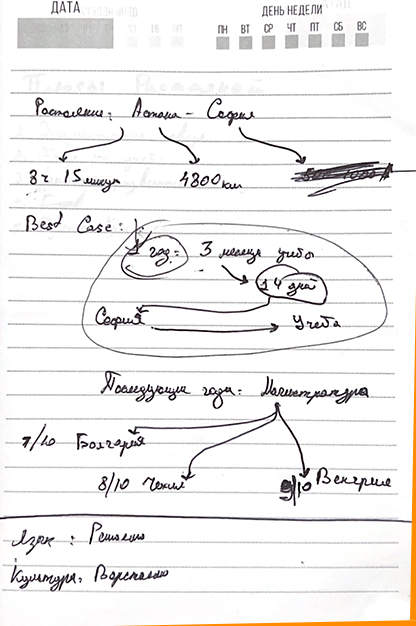 ДАТА
ДЕНЬ НЕДЕЛИ
ПН ВТ СР ЧТ ПТ СБ ВС
Растояние: Астана - София
8ч 15 минут 4800 км
Best Case:
1 год = 3 месяца учебы
14 дней
София Учеба
Последующии годы: Магистратура
7/10 Болгария
8/10 Чехия 9/10 Венгрия
Язык : Решаемо
Культура: